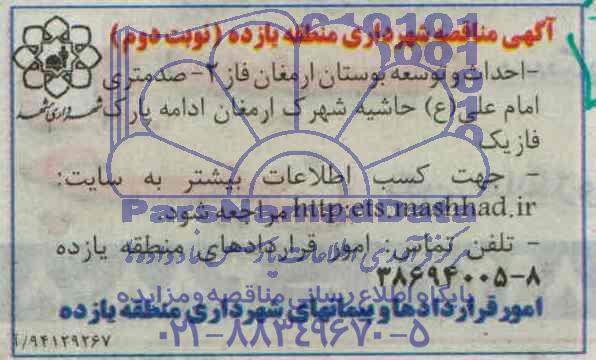 آگهی مناقصه شهرداری منطقه یازده (نوبت دوم)
-احداث و توسعه بوستان ارمغان فاز ۲- صدمتری
امام علی(ع) حاشیه شهرک ارمغان ادامه پارک
فازیک
- جهت کسب اطلاعات بیشتر به سایت:
http:ets.mashhad.ir مراجعه شود.
- تلفن تماس: امور قراردادهای منطقه یازده
۳۸۶۹۴۰۰۵-۸
امور قراردادها و پیمانهای شهرداری منطقه یازده
/۹۴۱۲۹۲۶۷
شهرداری مشهد
پایگاه اطلاع رسانی مناقصه و مزایده
۰۲۱-۸۸۳۴۹۶۷۰-۵